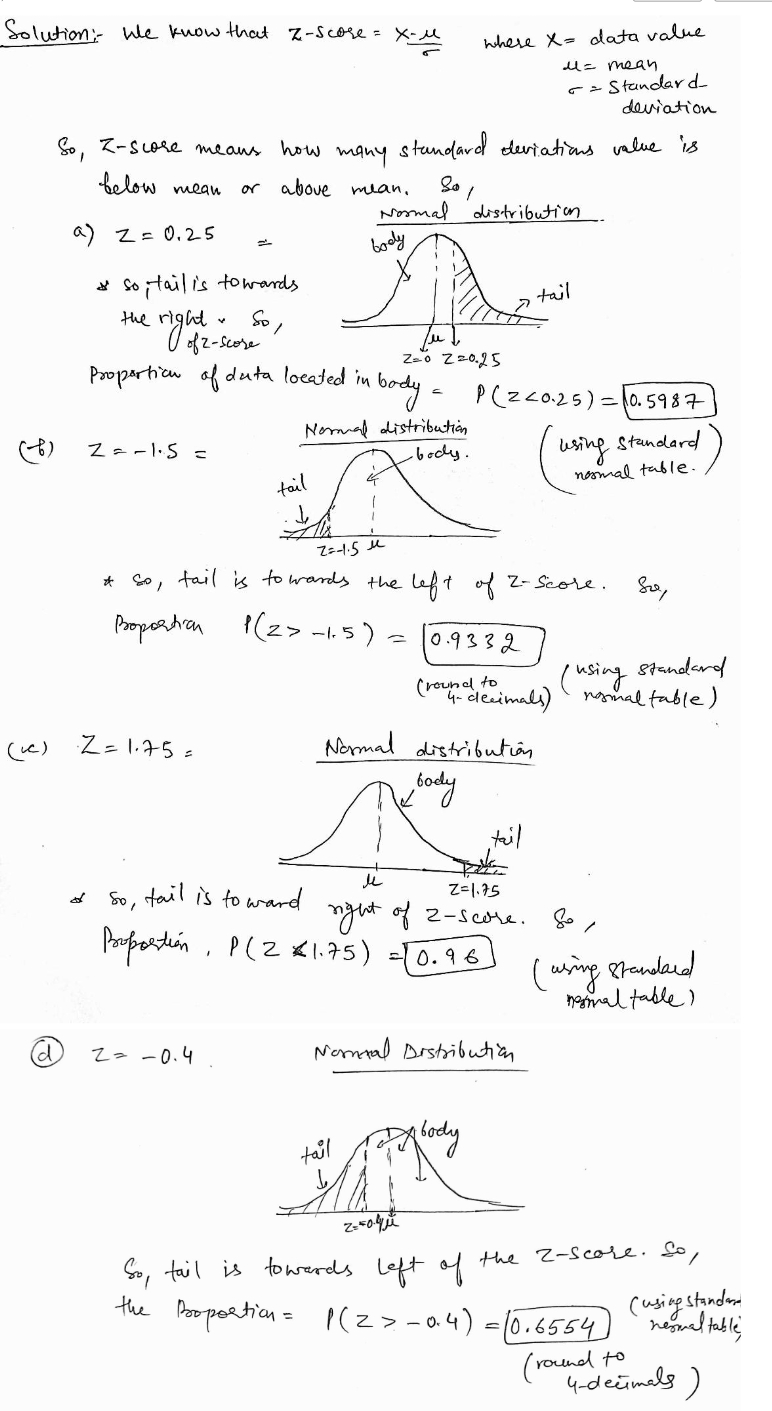 Solution:- We know that Z-score = x-μ/σ where x = data value
μ = mean
σ = Standard
deviation
So, Z-score means how many standard deviations value is
below mean or above mean. So,
Normal distribution
a) Z = 0.25 =
body
* so, tail is towards
the right. So,
of Z-score
tail
μ
Z=0 Z=0.25
Proportion of data located in body = P(Z<0.25) = 0.5987
(using standard
normal table.)
(b) Z = -1.5 =
Normal distribution
body.
tail
Z=-1.5 μ
* So, tail is towards the left of Z-Score. So,
Proportion P(Z > -1.5) = 0.9332
(round to
4-decimals)
(using standard
normal table)
(c) Z = 1.75 =
Normal distribution
body
tail
μ
Z=1.75
* So, tail is toward right of Z-score. So,
Proportion, P(Z < 1.75) = 0.96
(using standard
normal table)
(d) Z = -0.4
Normal Distribution
body
tail
Z=-0.4 μ
So, tail is towards left of the Z-score. So,
the Proportion = P(Z > -0.4) = 0.6554
(using standard
normal table)
(round to
4-decimals)